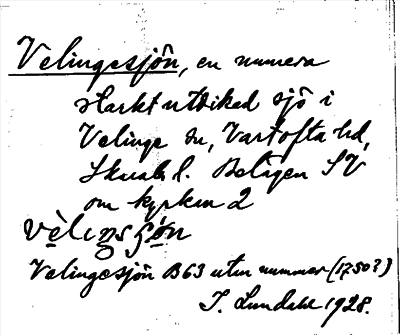 Velingesjön, en numera
starkt utdiked sjö i
Velinge sn, Vartofta hd,
Skarab. l. Belägen SV
om kyrkan 2
vèliŋsʃön
Velingesjön B63 utan nummer (1750?)
I. Lundahl 1928.